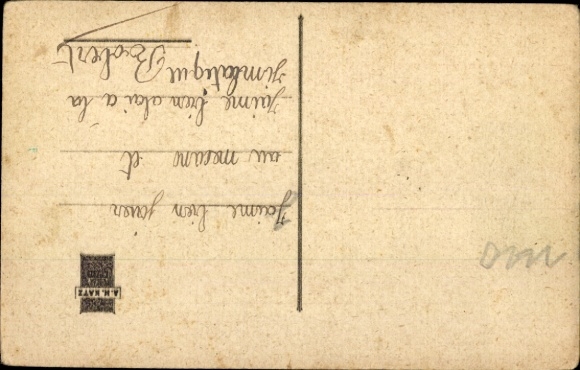 J'aime bien jouer
au mecano et
J'aime bien alai a la
jimlatique Robert
A.H. KATZ